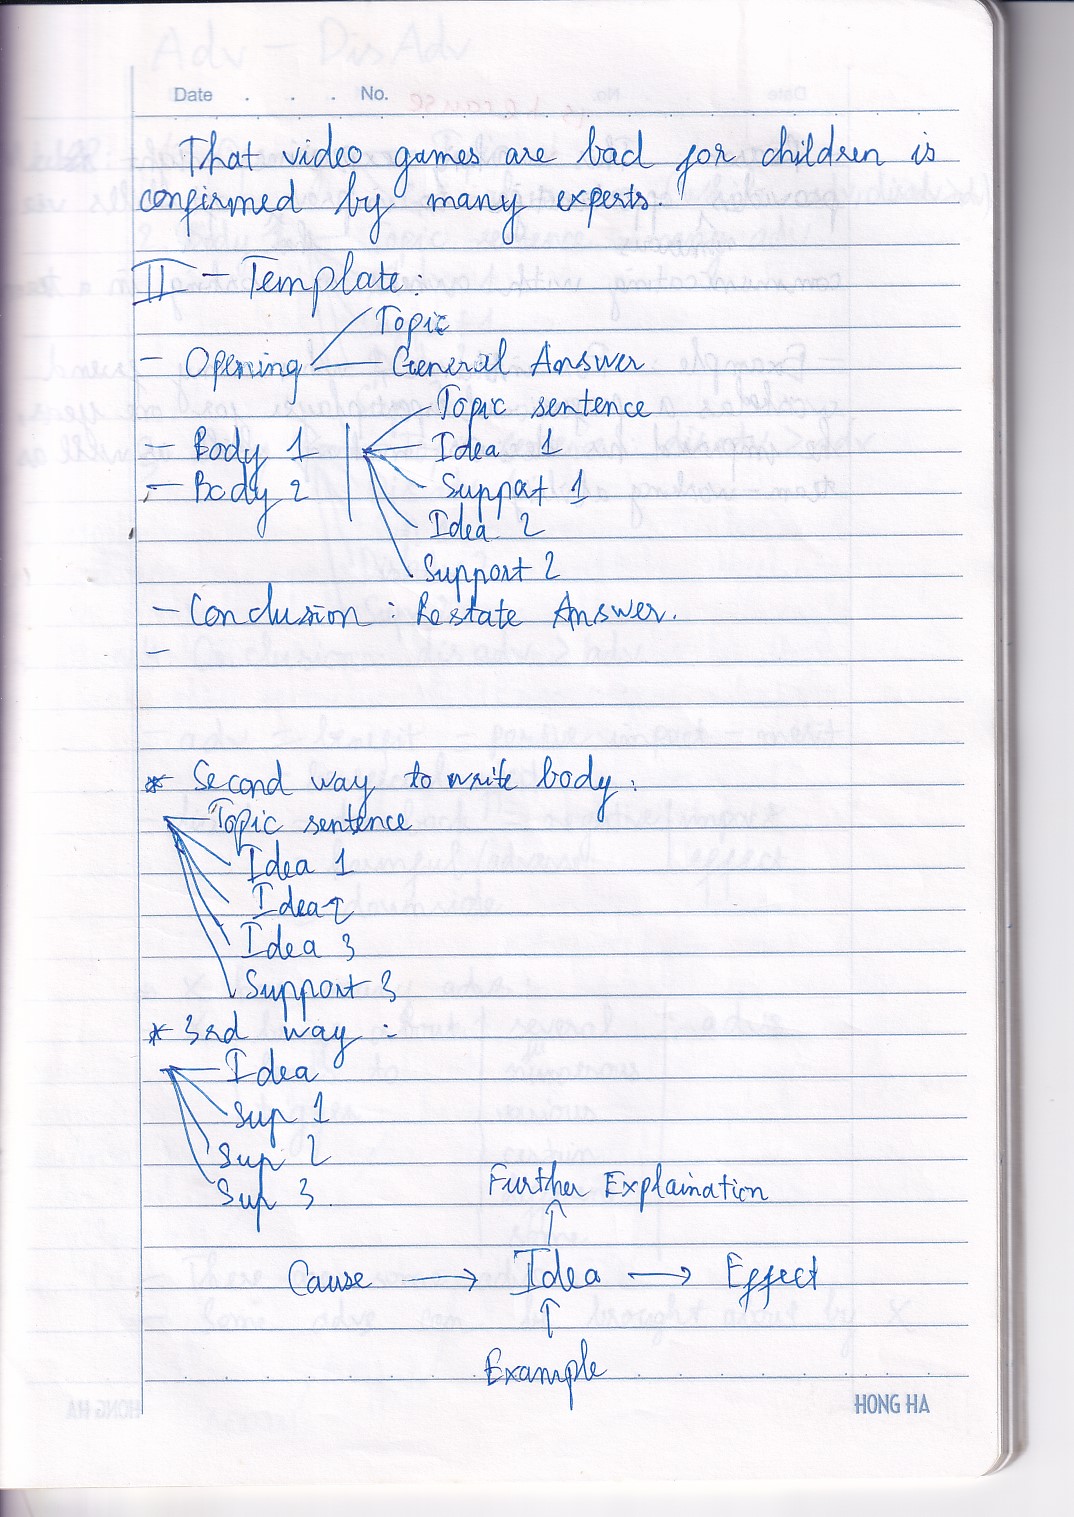 Date . . . No.
That video games are bad for children is
confirmed by many experts.
II - Template:
Topic
- Opening General Answer
Topic sentence
- Body 1 Idea 1
- Body 2 Support 1
Idea 2
Support 2
- Conclusion : Restate Answer.
-
* Second way to write body:
Topic sentence
Idea 1
Idea 2
Idea 3
Support 3
* 3rd way :
Idea
Sup 1
Sup 2
Sup 3
Further Explaination
Cause → Idea → Effect
Example
HONG HA